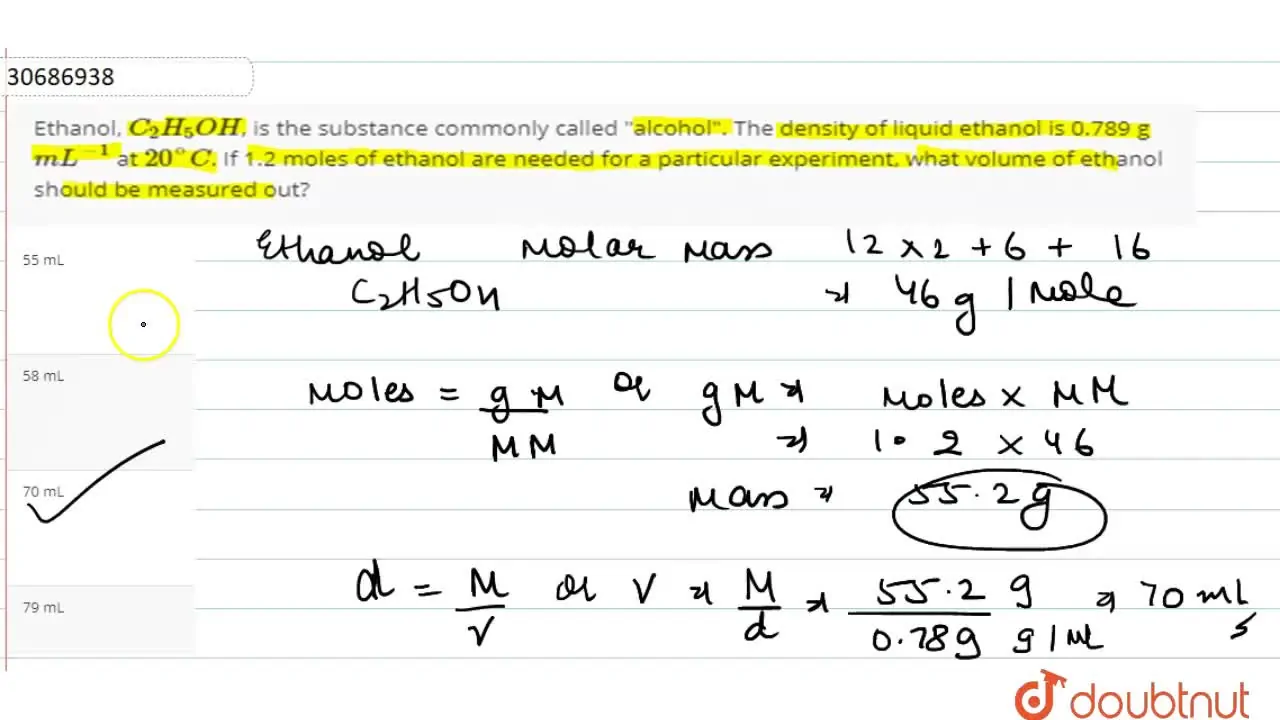 30686938
Ethanol, C₂H₅OH, is the substance commonly called "alcohol". The density of liquid ethanol is 0.789 g
mL⁻¹ at 20°C. If 1.2 moles of ethanol are needed for a particular experiment, what volume of ethanol
should be measured out?
Ethanol molar mass 12 × 2 + 6 + 16
55 mL
C₂H₅OH ⇒ 46 g / mole
58 mL
moles = g M / MM or gM ⇒ moles × MM
⇒ 1.2 × 46
70 mL
mass ⇒ 55.2 g
d = M / V or V ⇒ M / d ⇒ 55.2 g / 0.789 g/mL ⇒ 70 mL
79 mL
doubtnut